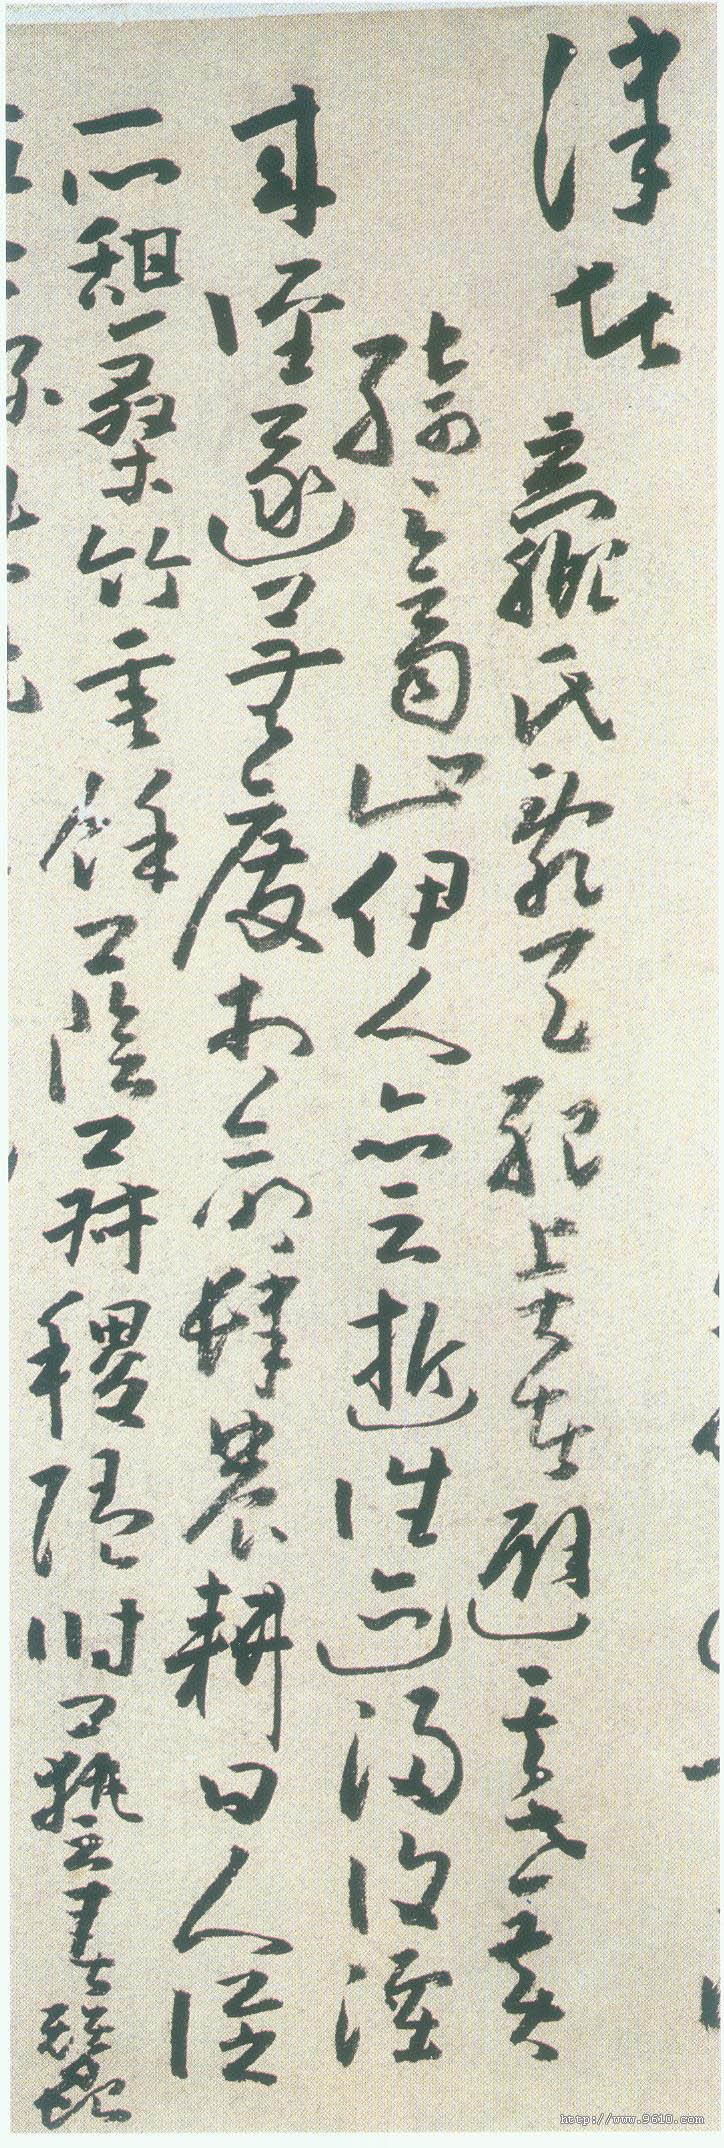 津者嬴氏亂天紀賢者避其世黃
綺之商山伊人亦云逝往迹寖復湮
来徑遂蕪廢相命肆農耕日入從
所憩桑竹垂餘蔭菽稷隨時藝春蠶
http://www.9610.com